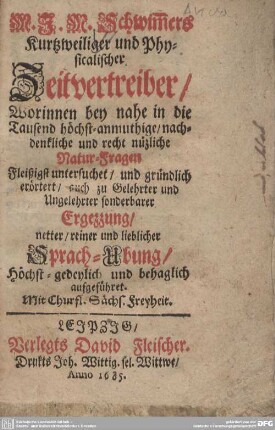 M. J. M. Schwim̃ers
Kurtzweiliger und Phy-
sicalischer
Zeitvertreiber/
Worinnen bey nahe in die
Tausend höchst-anmuthige/ nach-
denkliche und recht nüzliche
Natur-Fragen
Fleißigst untersuchet/ und gründlich
erörtert/ auch zu Gelehrter und
Ungelehrter sonderbarer
Ergezzung/
netter/ reiner und lieblicher
Sprach-Ubung/
Höchst-gedeylich und behaglich
aufgeführet.
Mit Churfl. Sächs. Freyheit.
LEIPZIG/
Verlegts David Fleischer.
Drukts Joh. Wittig. sel. Wittwe/
Anno 1685.